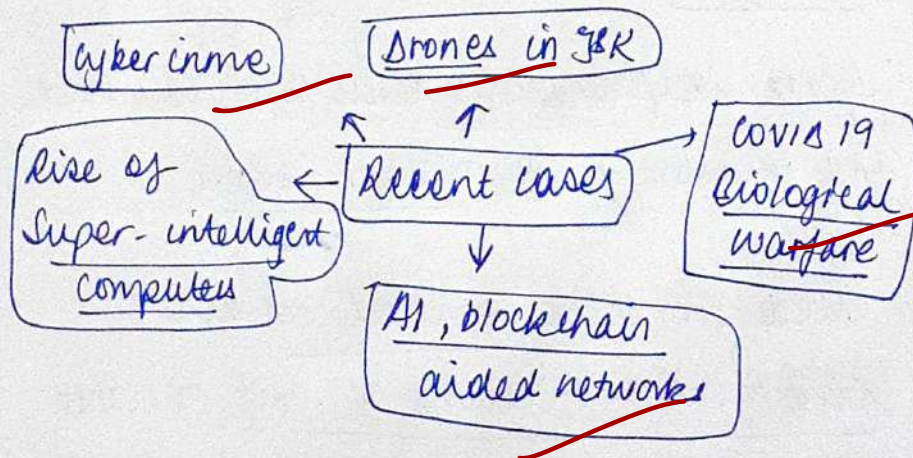 Cyber crime
Drones in J&K
Rise of
Super-intelligent
computers
Recent cases
COVID 19
Biological
warfare
AI, blockchain
aided networks